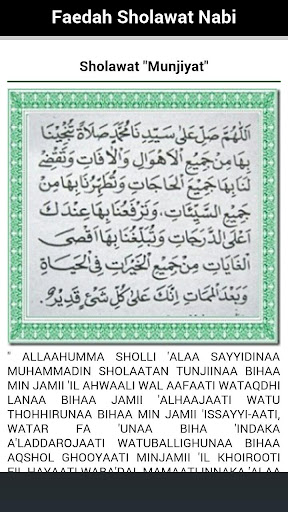 Faedah Sholawat Nabi
Sholawat "Munjiyat"
اَللّٰهُمَّ صَلِّ عَلٰى سَيِّدِنَا مُحَمَّدٍ صَلَاةً تُنْجِيْنَا
بِهَا مِنْ جَمِيْعِ الْاَهْوَالِ وَالْاٰفَاتِ وَتَقْضِىْ
لَنَا بِهَا جَمِيْعَ الْحَاجَاتِ وَتُطَهِّرُنَا بِهَا مِنْ
جَمِيْعِ السَّيِّئَاتِ، وَتَرْفَعُنَا بِهَا عِنْدَكَ
اَعْلَى الدَّرَجَاتِ وَتُبَلِّغُنَا بِهَا اَقْصَى
الْغَايَاتِ مِنْ جَمِيْعِ الْخَيْرَاتِ فِى الْحَيَاةِ
وَبَعْدَ الْمَمَاتِ اِنَّكَ عَلٰى كُلِّ شَىْءٍ قَدِيْرٌ
" ALLAAHUMMA SHOLLI 'ALAA SAYYIDINAA
MUHAMMADIN SHOLAATAN TUNJIINAA BIHAA
MIN JAMII 'IL AHWAALI WAL AAFAATI WATAQDHI
LANAA BIHAA JAMII 'ALHAAJAATI WATU
THOHHIRUNAA BIHAA MIN JAMII 'ISSAYYI-AATI,
WATAR FA 'UNAA BIHA 'INDAKA
A'LADDAROJAATI WATUBALLIGHUNAA BIHAA
AQSHOL GHOOYAATI MINJAMII 'IL KHOIROOTI
FIL HAYAATI WABA'DAL MAMAATI INNAKA 'ALAA